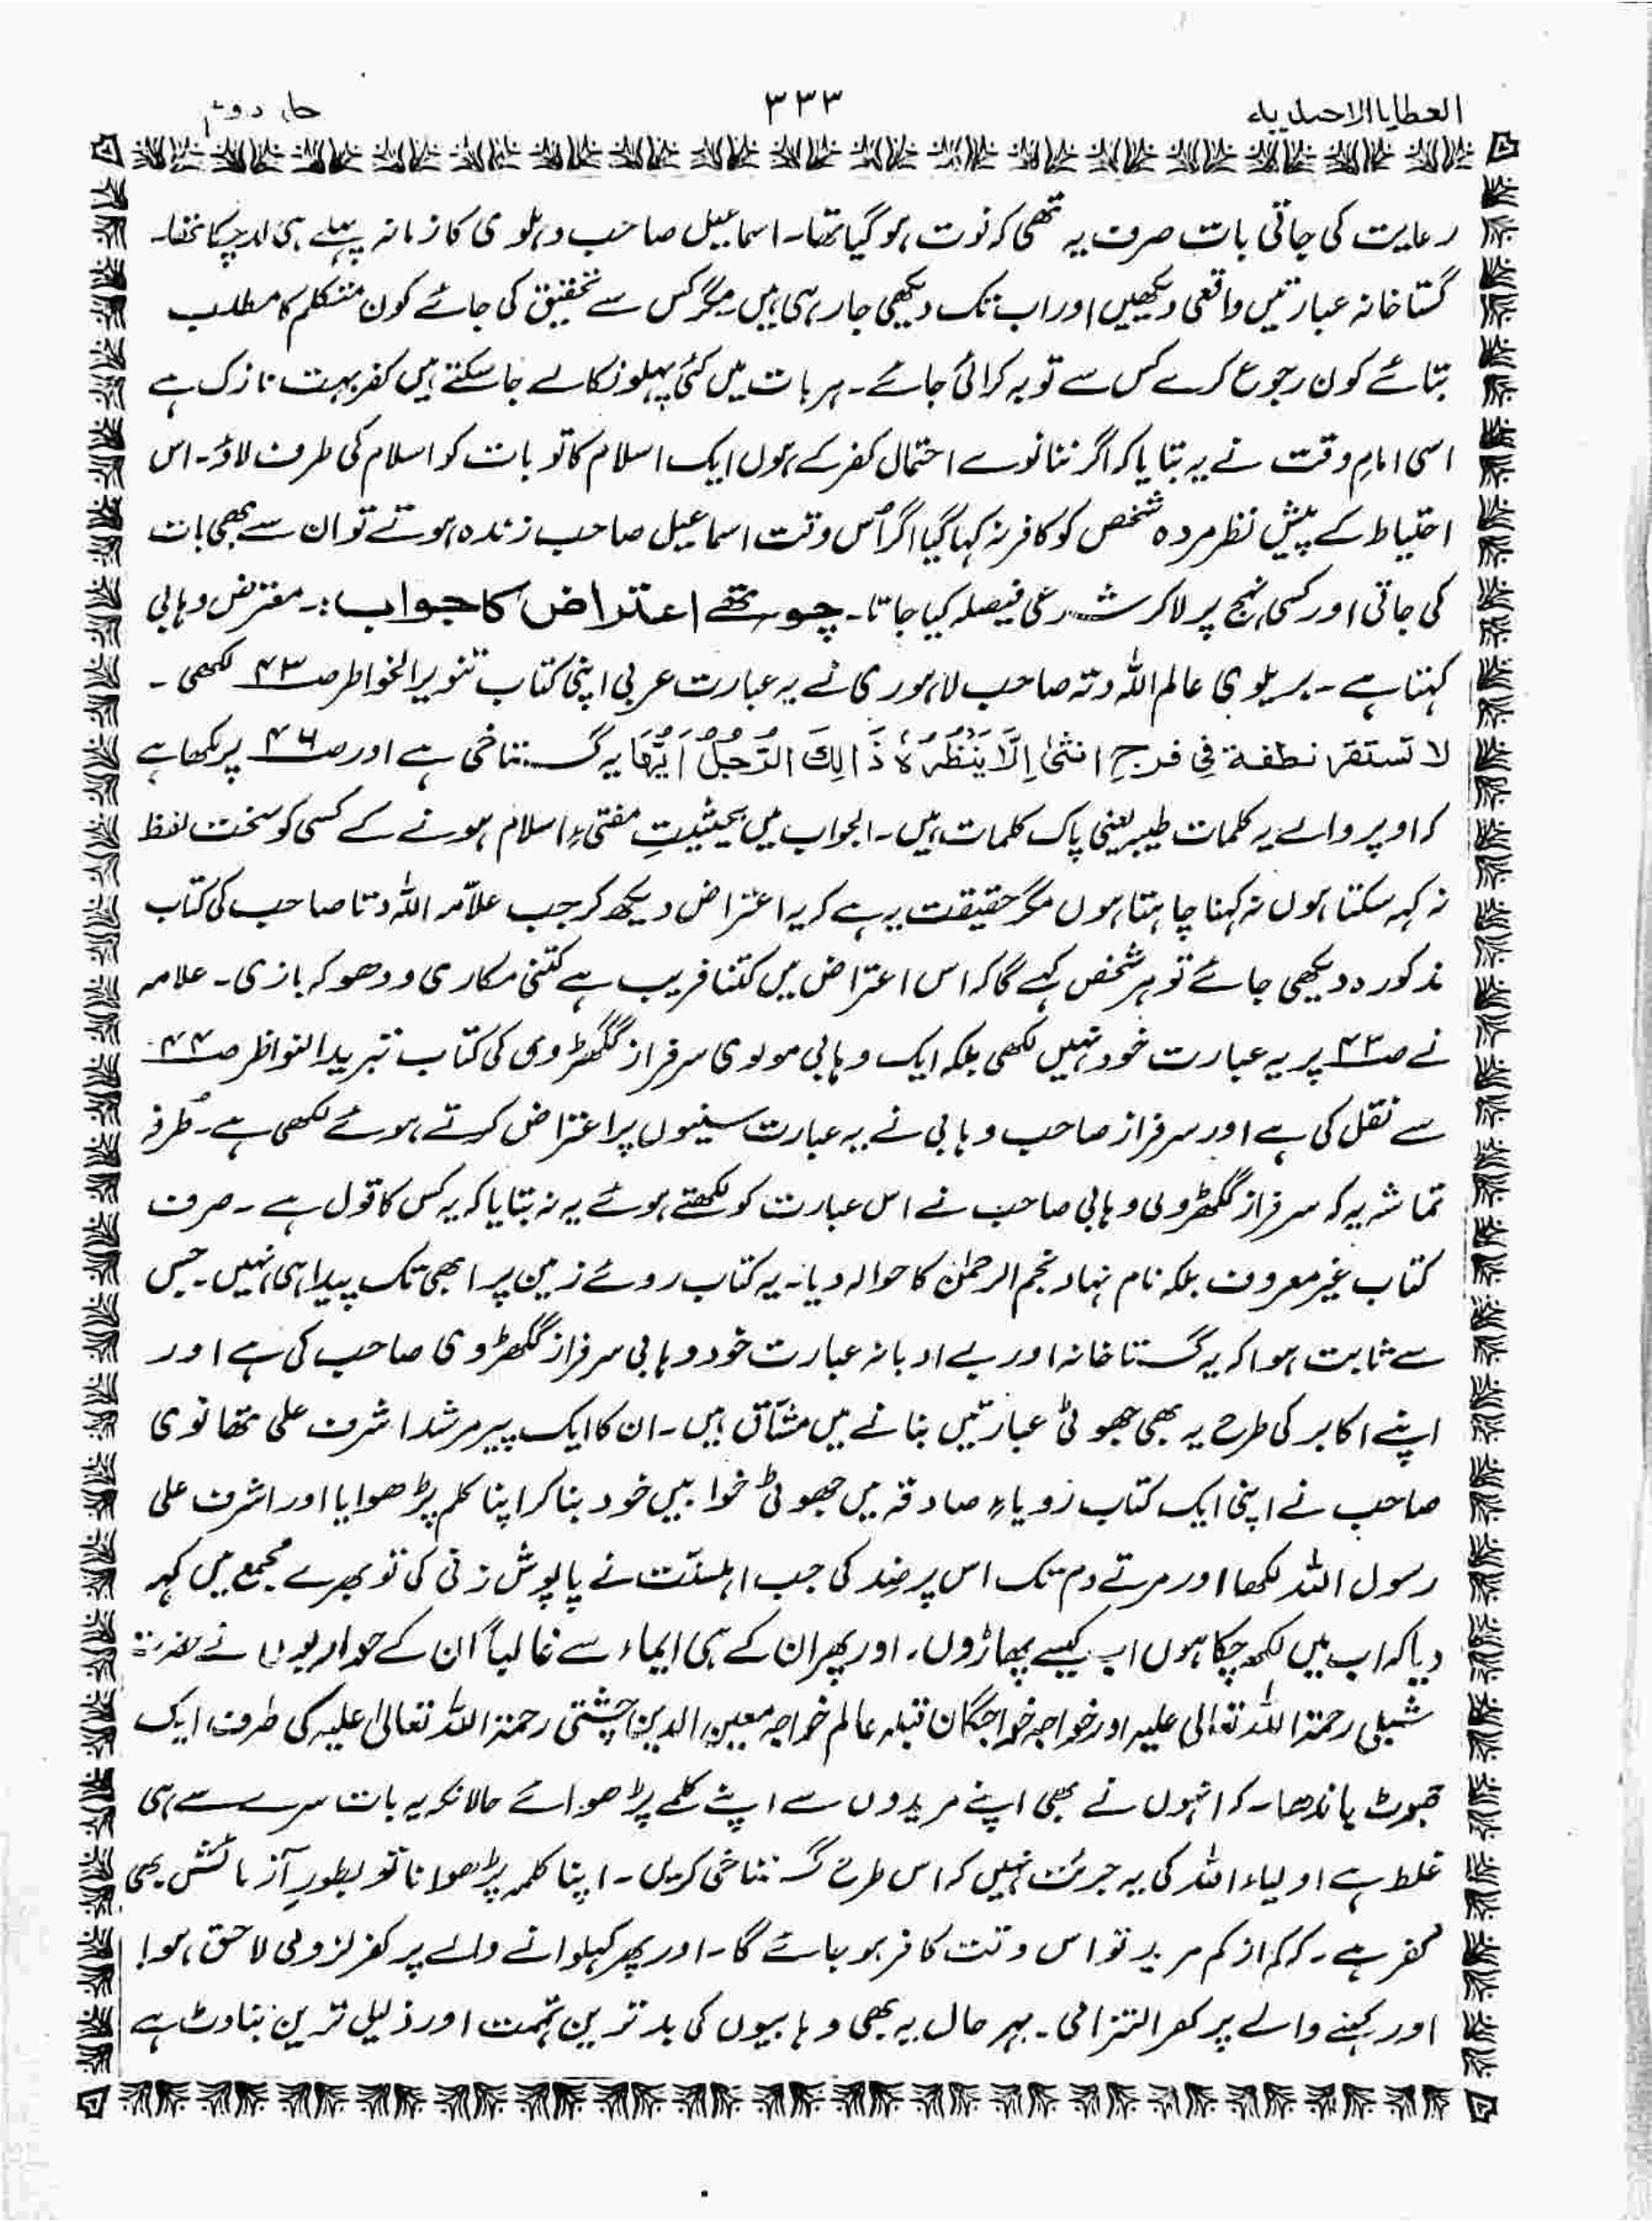 العطایا الاحمدیہ
۳۳۳
جلد دوم
رعایت کی جاتی بات صرف یہ تھی کہ فوت ہو گیا تھا۔ اسماعیل صاحب دہلوی کا زمانہ پہلے ہی لد چکا تھا۔
گستاخانہ عبارتیں واقعی دیکھیں اور اب تک دیکھی جا رہی ہیں۔ مگر کس سے تحقیق کی جائے کون متکلم کا مطلب
بتائے کون رجوع کرے کس سے توبہ کرائی جائے۔ ہر بات میں کئی پہلو نکالے جا سکتے ہیں کفر بہت نازک ہے
اسی امامِ وقت نے یہ بتایا کہ اگر ننانوے احتمال کفر کے ہوں ایک اسلام کا تو بات کو اسلام کی طرف لاؤ۔ اس
احتیاط کے پیش نظر مردہ شخص کو کافر نہ کہا گیا اگر اُس وقت اسماعیل صاحب زندہ ہوتے تو ان سے بھی بات
کی جاتی اور کسی نہج پر لا کر شرعی فیصلہ کیا جاتا۔ چوتھے اعتراض کا جواب:۔ معترض وہابی
کہتا ہے۔ بریلوی عالم اللہ دتہ صاحب لاہوری نے یہ عبارت عربی اپنی کتاب تنویر الخواطر صـ۴۳ لکھی۔
لا تستقر نطفة فِی فرجِ انثیٰ اِلَّا یَنْظُرُہٗ ذَالِكَ الرَّجُلُ اَیُّهَا یہ گستاخی ہے اور صـ۴۶ پر لکھا ہے
کہ اوپر والے یہ کلمات طیبہ یعنی پاک کلمات ہیں۔ الجواب میں بحیثیتِ مفتیءِ اسلام ہونے کے کسی کو سخت لفظ
نہ کہہ سکتا ہوں نہ کہنا چاہتا ہوں مگر حقیقت یہ ہے کہ یہ اعتراض دیکھ کر جب علاّمہ اللہ دتا صاحب کی کتاب
مذکورہ دیکھی جائے تو ہر شخص کہے گا کہ اس اعتراض میں کتنا فریب ہے کتنی مکاری و دھوکہ بازی۔ علامہ
نے صـ۴۳ پر یہ عبارت خود نہیں لکھی بلکہ ایک وہابی مولوی سرفراز گکھڑوی کی کتاب تبرید النواظر صـ۴۴
سے نقل کی ہے اور سرفراز صاحب وہابی نے یہ عبارت سنیوں پر اعتراض کرتے ہوئے لکھی ہے۔ طُرفہ
تماشہ یہ کہ سرفراز گکھڑوی وہابی صاحب نے اس عبارت کو لکھتے ہوئے یہ نہ بتایا کہ یہ کس کا قول ہے۔ صرف
کتاب غیر معروف بلکہ نام نہاد نجم الرحمٰن کا حوالہ دیا۔ یہ کتاب روئے زمین پر ابھی تک پیدا ہی نہیں۔ جس
سے ثابت ہوا کہ یہ گستاخانہ اور بے ادبانہ عبارت خود وہابی سرفراز گکھڑوی صاحب کی ہے اور
اپنے اکابر کی طرح یہ بھی جھوٹی عبارتیں بنانے میں مشّاق ہیں۔ ان کا ایک پیر مرشد اشرف علی تھانوی
صاحب نے اپنی ایک کتاب رویاءِ صادقہ میں جھوٹی خوابیں خود بنا کر اپنا کلمہ پڑھوایا اور اشرف علی
رسول اللہ لکھا اور مرتے دم تک اس پر ضد کی جب اہلسنّت نے پاپوش زنی کی تو بھرے مجمع میں کہہ
دیا کہ اب میں لکھ چکا ہوں اب کیسے پھاڑوں۔ اور پھر ان کے ہی ایماء سے غالباً ان کے حواریوں نے حضرت
شبلی رحمۃ اللہ تعالی علیہ اور خواجہ خواجگان قبلہ عالم خواجہ معین الدین چشتی رحمۃ اللہ تعالیٰ علیہ کی طرف ایک
جھوٹ باندھا۔ کہ انہوں نے بھی اپنے مریدوں سے اپنے کلمے پڑھوائے حالانکہ یہ بات سرے سے ہی
غلط ہے اولیاء اللہ کی یہ جرئت نہیں کہ اس طرح گستاخی کریں۔ اپنا کلمہ پڑھوانا تو بطورِ آزمائش بھی
کفر ہے۔ کہ کم از کم مرید تو اس وقت کافر ہو جائے گا۔ اور پھر کہلوانے والے پر کفر لزومی لاحق ہوا
اور کہنے والے پر کفر التزامی۔ بہر حال یہ بھی وہابیوں کی بدترین تہمت اور ذلیل ترین بناوٹ ہے